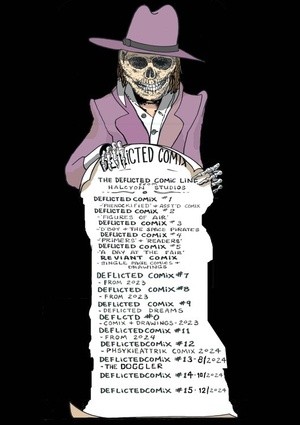 DEFLICTED COMIX
THE DEFLICTED COMIC LINE
HALCYON STUDIOS
DEFLICTED COMIX #1
DEFLICTED COMIX #2
- 'FIGURES OF AIR'
DEFLICTED COMIX #3
- 'D'BOY + THE SPACE PIRATES
DEFLICTED COMIX #4
- 'PRIMERS + READERS'
DEFLICTED COMIX #5
- 'A DAY AT THE FAIR'
REVIANT COMIX
- SINGLE PAGE COMICS +
DRAWINGS
DEFLICTED COMIX #7
- FROM 2023
DEFLICTED COMIX #8
- FROM 2023
DEFLICTED COMIX #9
- DEFLICTED DREAMS
DEFLCTD #0
- COMIX + DRAWINGS - 2023
DEFLICTED COMIX #11
- FROM 2024
DEFLICTED COMIX #12
- PHSYKIEATTRIK COMIX 2024
DEFLICTED COMIX #13 - 8/2024
- THE DOGGLER
DEFLICTED COMIX #14 - 10/2024
DEFLICTED COMIX #15 - 12/2024